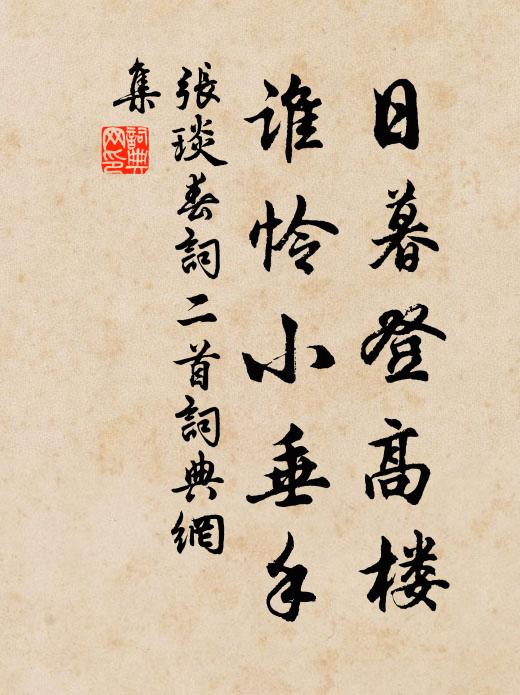 日暮登高楼
谁怜小垂手
張琰春詞二首詞典網
集
詞典
网印